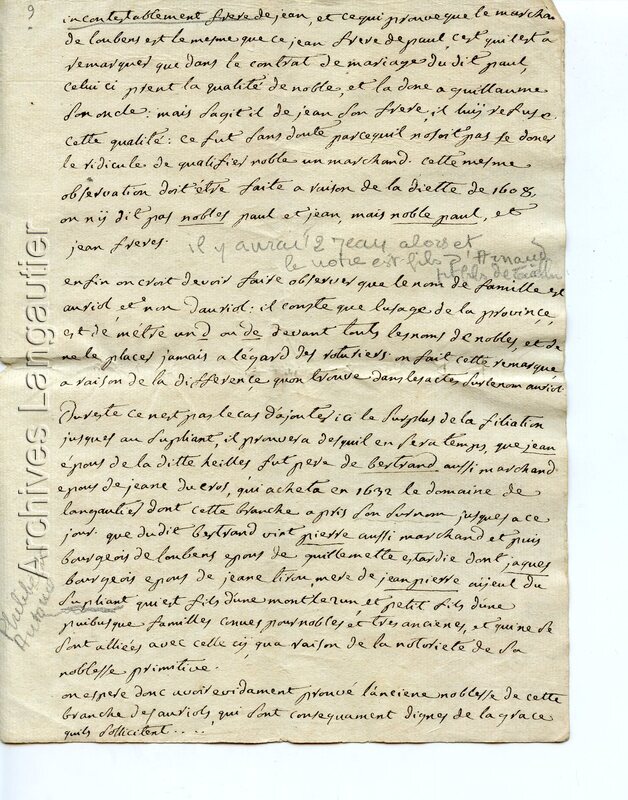 9
incontestablement frere de jean, et ce qui prouve que le marchan
de loubens est le mesme que ce jean frere de paul, c'est qu'il est a
remarquer que dans le contrat de mariage du dit paul,
celui ci prent la qualité de noble, et la done a guillaume
son oncle: mais s'agit il de jean son frere, il luy refuse
cette qualité: ce fut sans doute parcequ'il n'osoit pas se doner
le ridicule de qualifier noble un marchand. cette mesme
observation doit être faite a raison de la diette de 1608,
on n'ij dit pas nobles paul et jean, mais noble paul, et
jean freres.
il y aurai 2 jean alors et
le notre est fils d'Arnaud
enfin on croit devoir faire observer que le nom de famille est
auriol et non dauriol: il conste que l'usage de la province,
est de métre un d ou de devant touts les noms de nobles, et de
ne le placer jamais a l'égard des roturiers. on fait cette remarque
a raison de la difference qu'on trouve dans les actes sur le nom auriol.
Du reste ce n'est pas le cas d'ajouter ici le surplus de la filiation
jusques au supliant, il prouvera des qu'il en sera temps, que jean
epous de la ditte heilles fut pere de bertrand aussi marchand
epous de jeane du cros, qui acheta en 1632 le domaine de
langautier dont cette branche a pris son surnom jusques a ce
jour. que du dit bertrand vint pierre aussi marchand et puis
bourgeois de loubens epous de guillemette estardie dont jaques
bourgeois epous de jeane tirou, mere de jean pierre aijeul du
supliant qui est fils d'une montlezun, et petit fils d'une
puibusque familles conues pour nobles et tres ancienes, et qui ne se
sont alliées avec celle cij qu'a raison de la notorieté de sa
noblesse primitive.
on espere donc avoir evidament prouvé l'anciene noblesse de cette
branche des auriols, qui sont consequament dignes de la grace
qu'ils sollicitent....
Archives Langautier